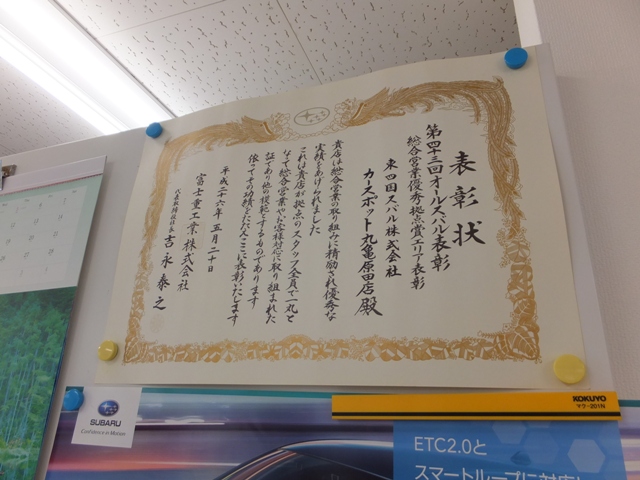 表彰状
第四十三回オールスバル表彰
総合営業優秀拠点賞エリア表彰
東四国スバル株式会社
カースポット丸亀原田店殿
貴店は総合営業の取り組みに精励され優秀な
実績をあげられました
これは貴店が拠点のスタッフ全員で一丸と
なって総合営業やお客様対応に取り組まれた
証であり他の模範とするものであります
依ってその功績をたたえここに表彰いたします
平成二十六年五月二十日
富士重工業株式会社
代表取締役社長吉永泰之
SUBARU
Confidence in Motion
KOKUYO
マク-201N
ETC2.0と
スマートループに対応し